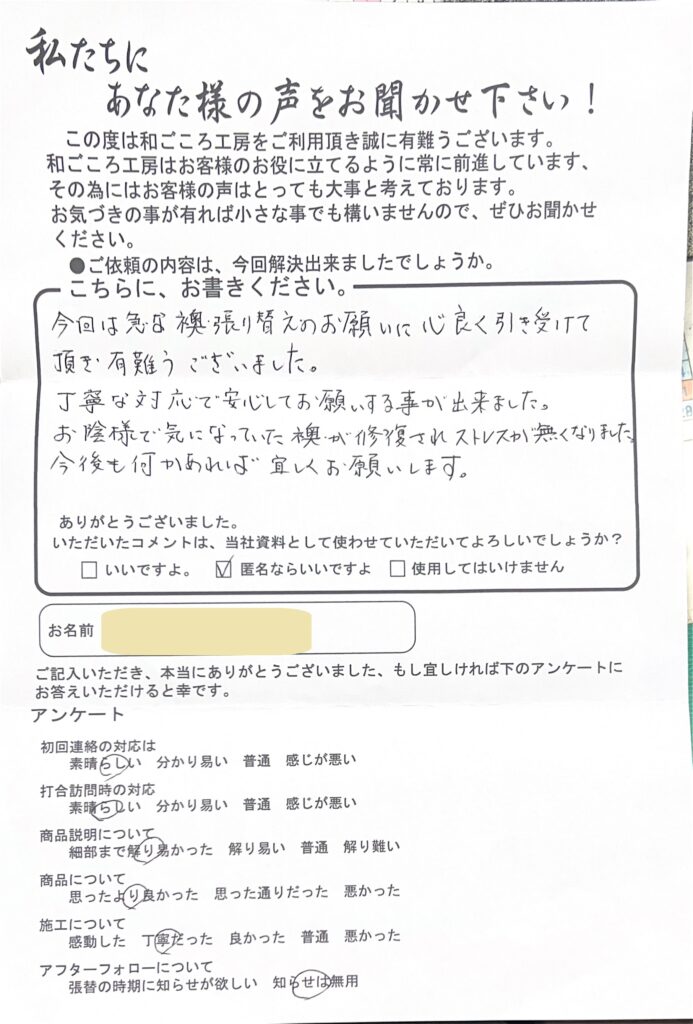 私たちに
あなた様の声をお聞かせ下さい!
この度は和ごころ工房をご利用頂き誠に有難うございます。
和ごころ工房はお客様のお役に立てるように常に前進しています、
その為にはお客様の声はとっても大事と考えております。
お気づきの事が有れば小さな事でも構いませんので、ぜひお聞かせ
ください。
●ご依頼の内容は、今回解決出来ましたでしょうか。
こちらに、お書きください。
今回は急な襖張り替えのお願いに心良く引き受けて
頂き有難うございました。
丁寧な対応で安心してお願いする事が出来ました。
お陰様で気になっていた襖が修復されストレスが無くなりました。
今後も何かあれば宜しくお願いします。
ありがとうございました。
いただいたコメントは、当社資料として使わせていただいてよろしいでしょうか?
□ いいですよ。 ☑ 匿名ならいいですよ □ 使用してはいけません
お名前
ご記入いただき、本当にありがとうございました、もし宜しければ下のアンケートに
お答えいただけると幸です。
アンケート
初回連絡の対応は
素晴らしい 分かり易い 普通 感じが悪い
打合訪問時の対応
素晴らしい 分かり易い 普通 感じが悪い
商品説明について
細部まで解り易かった 解り易い 普通 解り難い
商品について
思ったより良かった 思った通りだった 悪かった
施工について
感動した 丁寧だった 良かった 普通 悪かった
アフターフォローについて
張替の時期に知らせが欲しい 知らせは無用